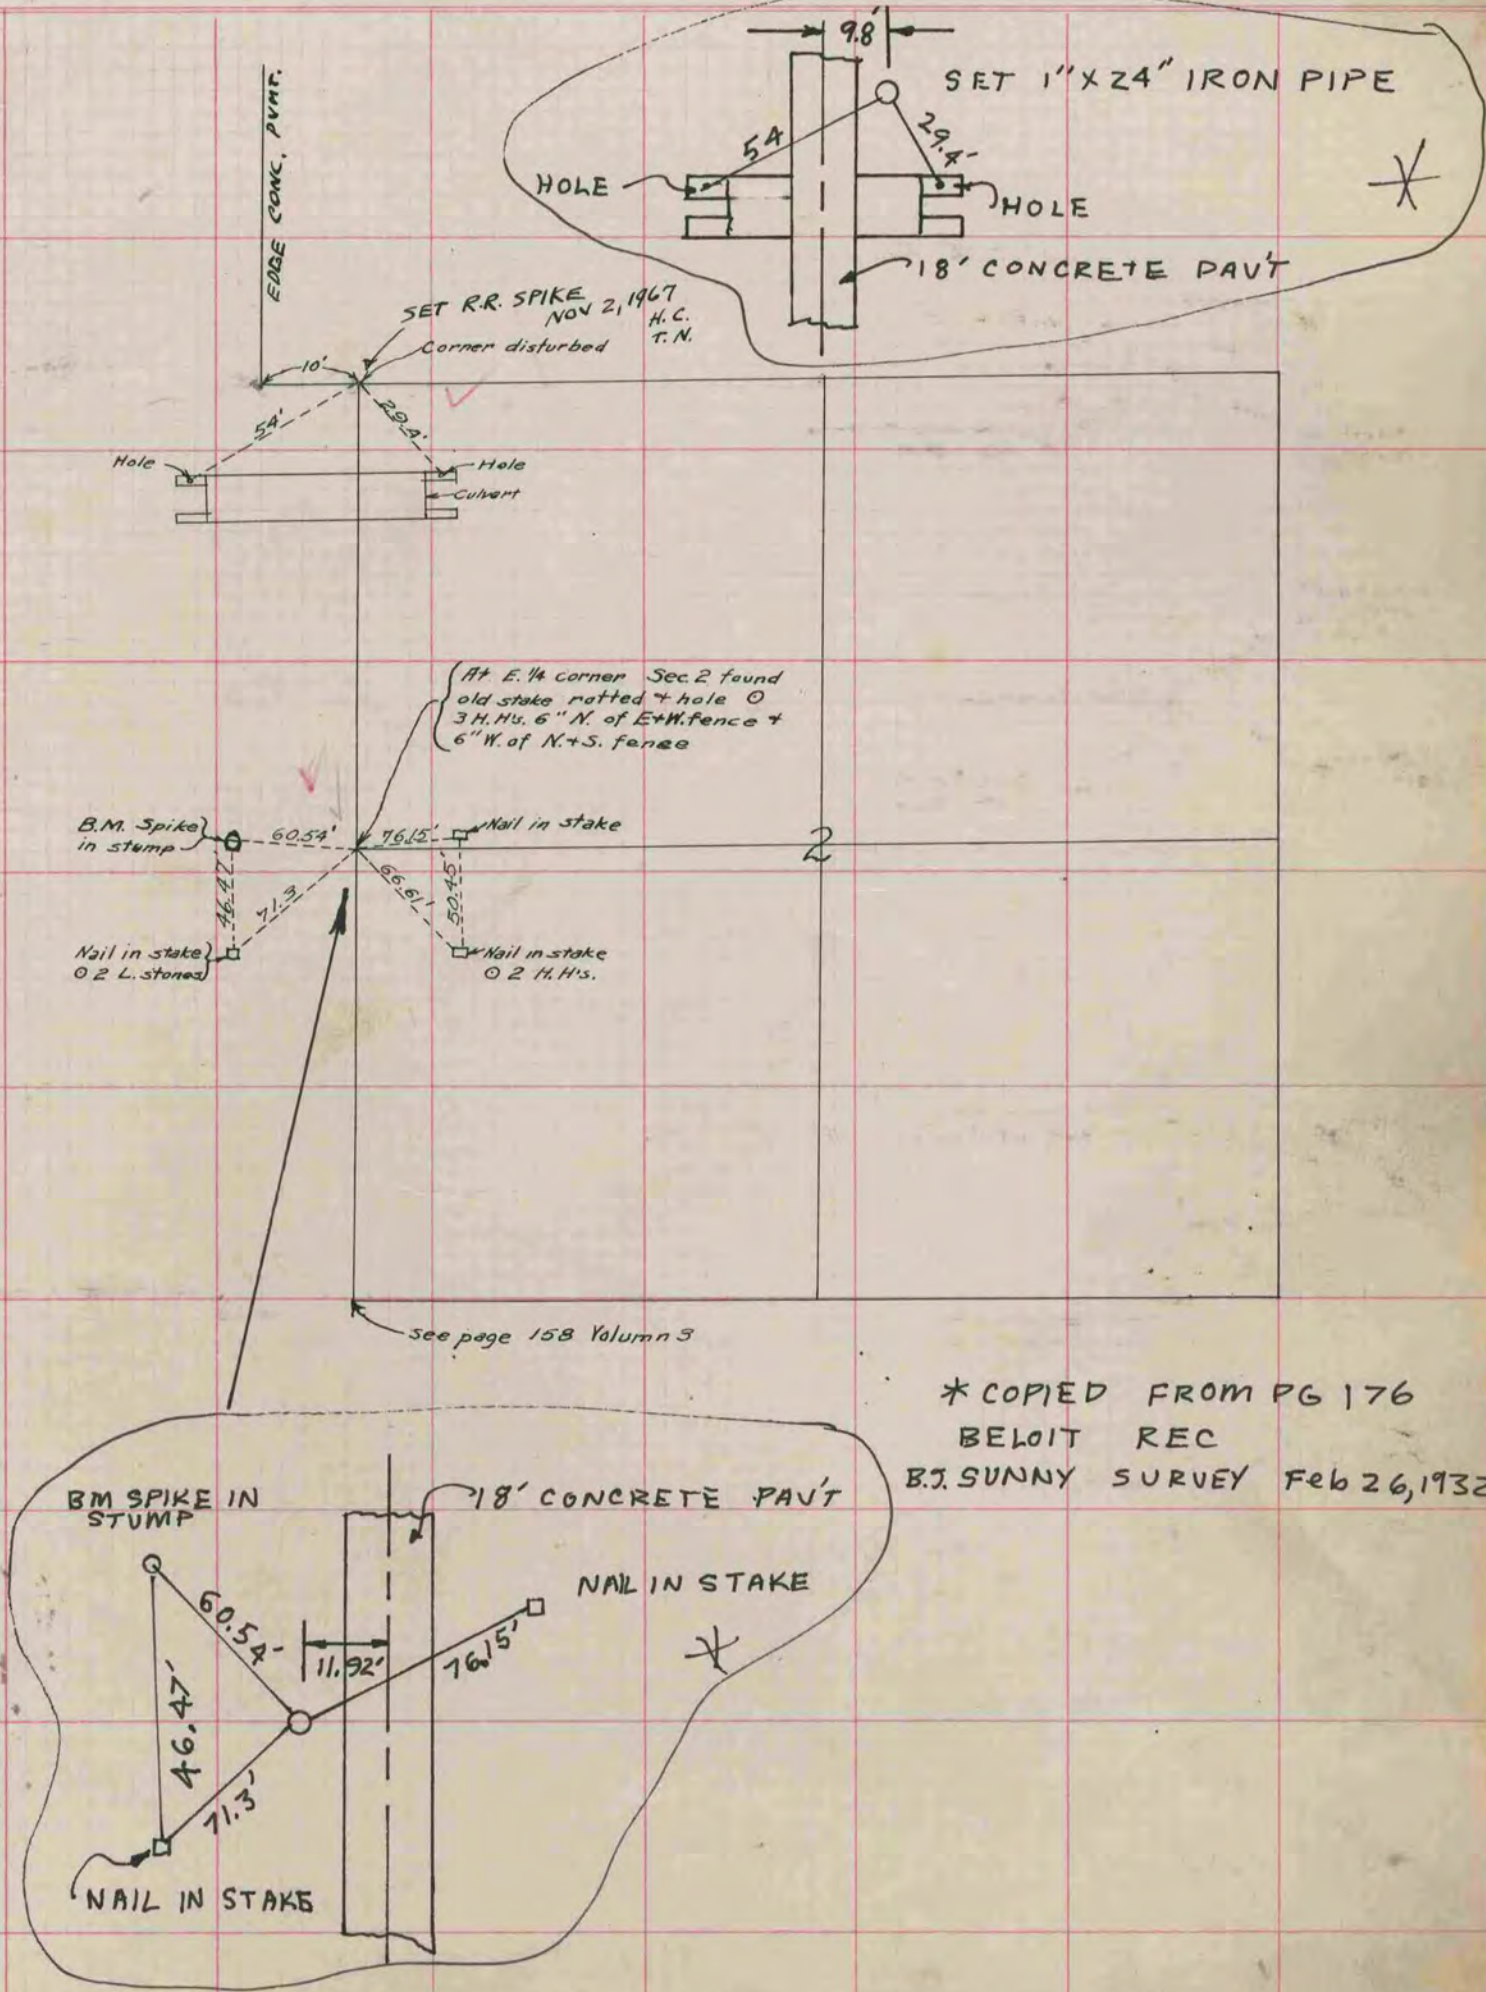 9.8'
SET 1" X 24" IRON PIPE
EDGE CONC. PVMT.
54
29.4'
HOLE
HOLE
18' CONCRETE PAV'T
SET R.R. SPIKE
NOV 2, 1967
H.C.
T.N.
Corner disturbed
10'
54'
29.4'
Hole
Hole
Culvert
At E. 1/4 corner Sec. 2 found
old stake rotted + hole ⊙
3 H.H's. 6" N. of E+W. fence +
6" W. of N.+S. fence
B.M. Spike
in stump
60.54'
76.15'
Nail in stake
2
46.47
71.3
66.61'
50.45
Nail in stake
⊙ 2 L. stones
Nail in stake
⊙ 2 H.H's.
See page 158 Volumn 3
* COPIED FROM PG 176
BELOIT REC
B.J. SUNNY SURVEY Feb 26, 1932
BM SPIKE IN
STUMP
18' CONCRETE PAV'T
NAIL IN STAKE
60.54'
11.92'
76.15'
46.47'
71.3'
NAIL IN STAKE